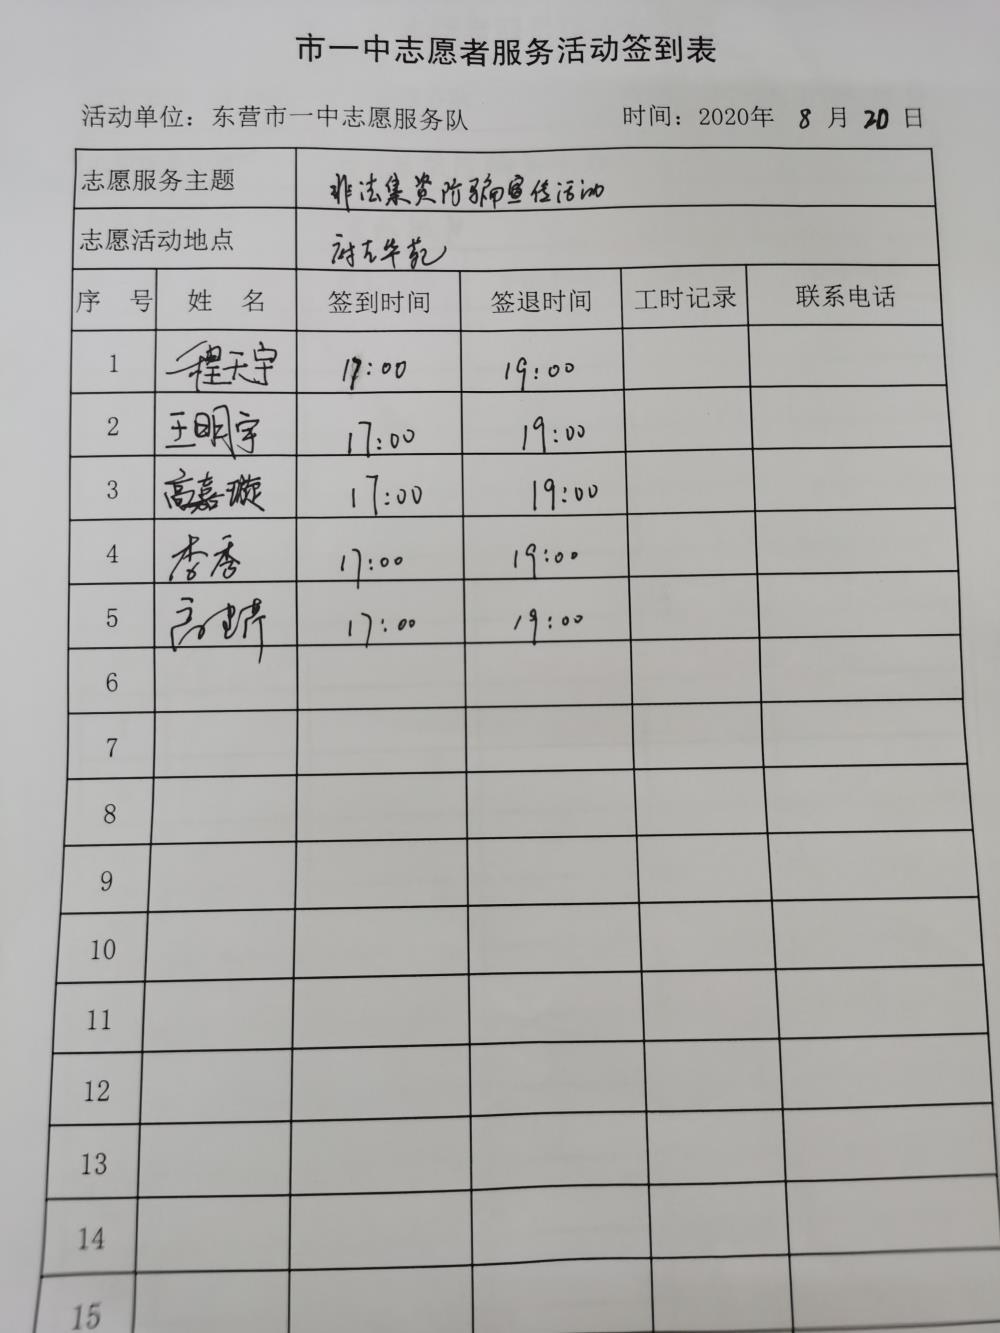 市一中志愿者服务活动签到表
活动单位：东营市一中志愿服务队 时间：2020年 8 月 20 日
志愿服务主题 非法集资防骗宣传活动
志愿活动地点 华苑
序 号 姓 名 签到时间 签退时间 工时记录 联系电话
1 程天宇 17:00 19:00
2 王明宇 17:00 19:00
3 高嘉璇 17:00 19:00
4 李秀 17:00 19:00
5 17:00 19:00
6
7
8
9
10
11
12
13
14
15